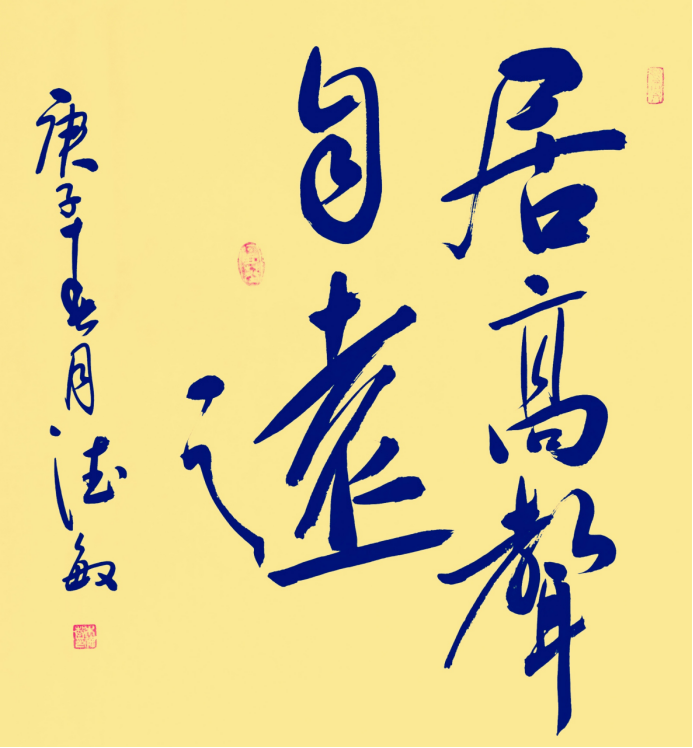 居高聲
自遠
庚子十二月德敏